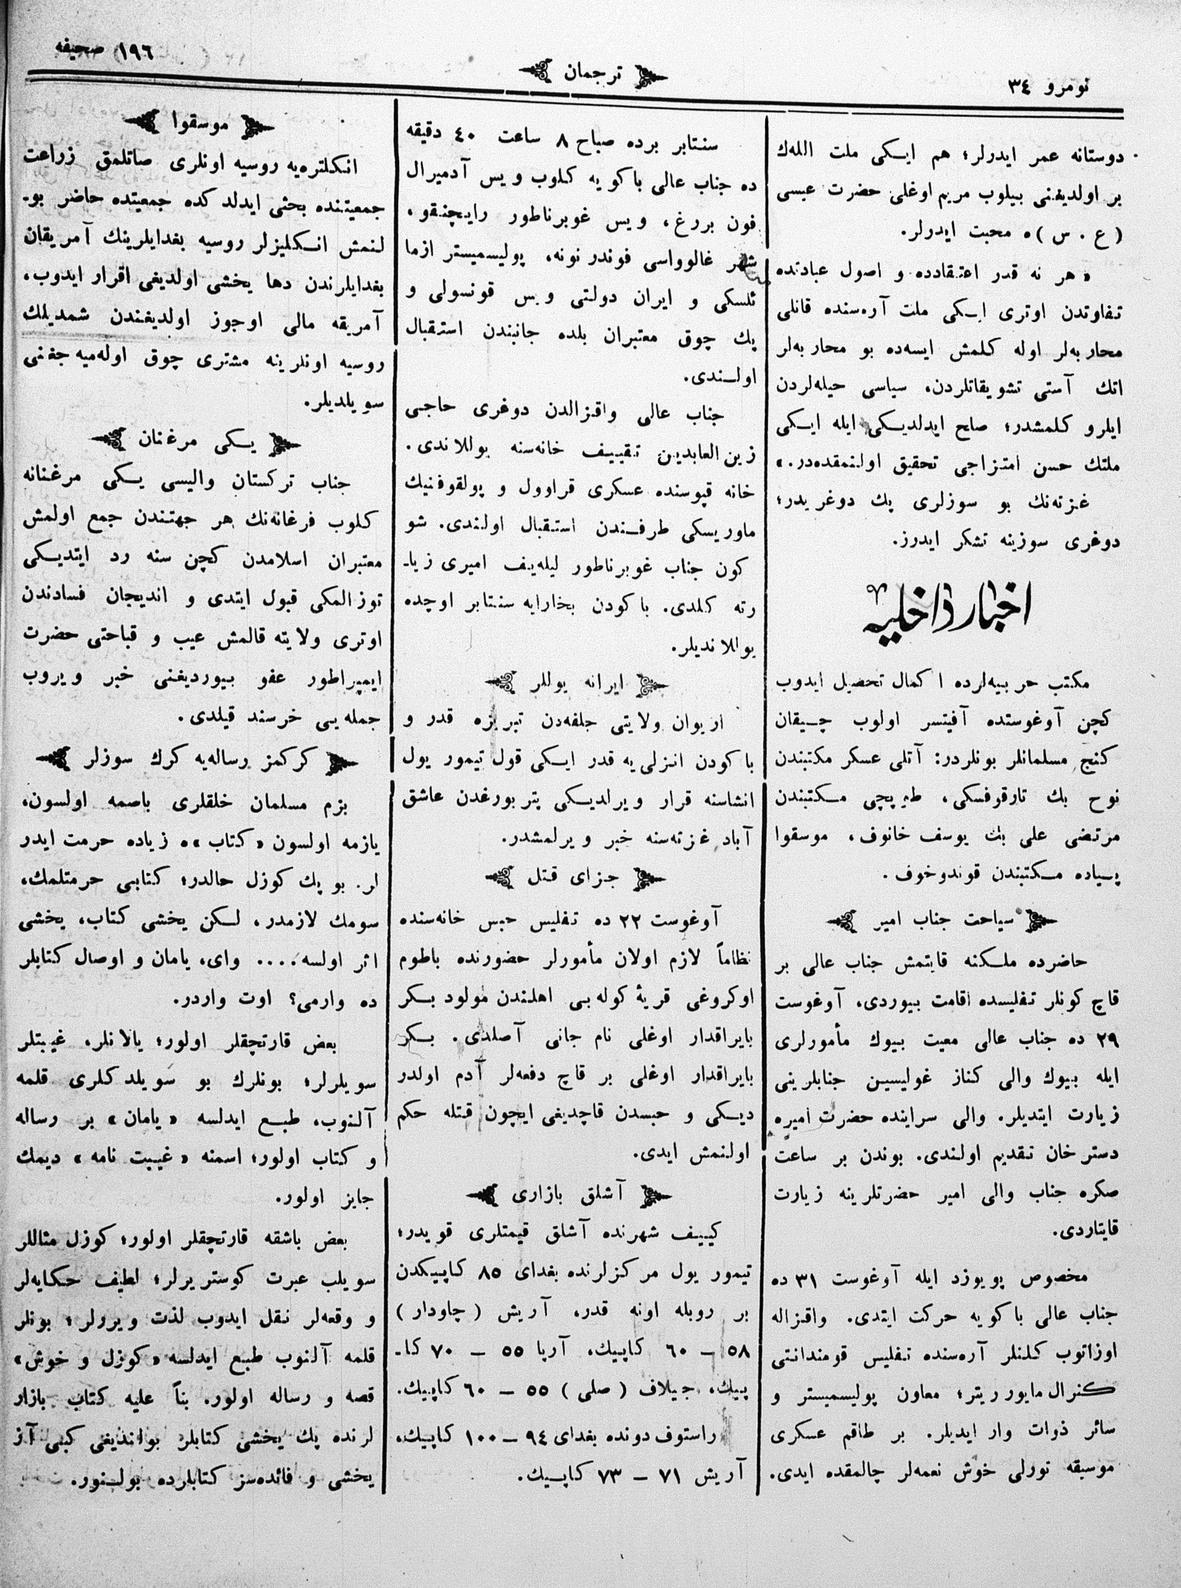 نومرو ٣٤
ترجمان
١٩٦ صحیفه
دوستانه عمر ایدرلر؛ هم ایکی ملت اللهك
بر اولدیغنی بیلوب مریم اوغلی حضرت عیسی
(ع . س)ه محبت ایدرلر.
«هر نه قدر اعتقادده و اصول عبادتده
تفاوتدن اوتری ایکی ملت آره‌سنده قانلی
محاربه‌لر اوله کلمش ایسه‌ده بو محاربه‌لر
اتك آستی تشویقاتلردن، سیاسی حیله‌لردن
ایلرو کلمشدر؛ صلح ایدلدیکی ایله ایکی
ملتك حسن امتزاجی تحقیق اولنمقده‌در.»
غزته‌نك بو سوزلری پك دوغریدر؛
دوغری سوزینه تشکر ایدرز.
اخبار داخلیه
مکتب حربیه‌لرده اکمال تحصیل ایدوب
کچن آوغوستده آفیتسر اولوب چیقان
کنج مسلمانلر بونلردر: آتلی عسکر مکتبندن
نوح بك تارقوفسکی، طوپچی مکتبندن
مرتضی علی بك یوسف خانوف، موسقوا
پیاده مکتبندن قوندوخوف.
سیاحت جناب امیر
حاضرده ملکنه قایتمش جناب عالی بر
قاچ کونلر تفلیسده اقامت بیوردی، آوغوست
٢٩ ده جناب عالی معیت بیوك مأمورلری
ایله بیوك والی کناز غولیسین جنابلرینی
زیارت ایتدیلر. والی سراینده حضرت امیره
دسترخان تقدیم اولندی. بوندن بر ساعت
صکره جناب والی امیر حضرتلرینه زیارت
قایتاردی.
مخصوص پویوزد ایله آوغوست ٣١ ده
جناب عالی باکویه حرکت ایتدی. واقزاله
اوزاتوب کلنلر آره‌سنده تفلیس قومندانتی
کنرال مایور ریتر؛ معاون پولیسمیستر و
سائر ذوات وار ایدیلر. بر طاقم عسکری
موسیقه تورلی خوش نغمه‌لر چالمقده ایدی.
سنتابر برده صباح ٨ ساعت ٤٠ دقیقه
ده جناب عالی باکویه کلوب ویس آدمیرال
فون بررغ، ویس غوبرناطور رایچنقو،
شهر غالوواسی فوندرنونه، پولیسمیستر ازما
ئلسکی و ایران دولتی ویس قونسولی و
پك چوق معتبران بلده جانبندن استقبال
اولندی.
جناب عالی واقزالدن دوغری حاجی
زین‌العابدین تقییف خانه‌سنه یوللاندی.
خانه قپوسنده عسکری قراوول و پولقوفنیك
ماوریسکی طرفندن استقبال اولندی. شو
کون جناب غوبرناطور لیله‌یف امیری زیا-
رته کلدی. باکودن بخارایه سنتابر اوچده
یوللاندیلر.
ایرانه یوللر
اریوان ولایتی جلفه‌دن تبریزه قدر و
باکودن انزلی‌یه قدر ایکی قول تیمور یول
انشاسنه قرار ویرلدیکی پتربورغدن عاشق
آباد غزته‌سنه خبر ویرلمشدر.
جزای قتل
آوغوست ٢٢ ده تفلیس حبس خانه‌سنده
نظاماً لازم اولان مأمورلر حضورنده باطوم
اوکروغی قریۀ کوله‌بی اهلندن مولود بکر
بایراقدار اوغلی نام جانی آصلدی. بکر
بایراقدار اوغلی بر قاچ دفعه‌لر آدم اولدر
دیکی و حبسدن قاچدیغی ایچون قتله حکم
اولنمش ایدی.
آشلق بازاری
کییف شهرنده آشلق قیمتلری قویدر؛
تیمور یول مرکزلرنده بغدای ٨٥ کاپیکدن
بر روبله اونه قدر، آریش (چاودار)
٥٨ – ٦٠ کاپیك، آرپا ٥٥ – ٧٠ کا-
پیك، جیلاف (صلی) ٥٥ – ٦٠ کاپیك.
راستوف دونده بغدای ٩٤ – ١٠٠ کاپیك،
آریش ٧١ – ٧٣ کاپیك.
موسقوا
انکلتره‌یه روسیه اونلری صاتلمق زراعت
جمعیتنده بحثی ایدلدکده جمعیتده حاضر بو-
لنمش انکلیزلر روسیه بغدایلرینك آمریقان
بغدایلرندن دها یخشی اولدیغی اقرار ایدوب،
آمریقه مالی اوجوز اولدیغندن شمدیلك
روسیه اونلرینه مشتری چوق اوله‌میه جغنی
سویلدیلر.
یکی مرغنان
جناب ترکستان والیسی یکی مرغنانه
کلوب فرغانه‌نك هر جهتندن جمع اولمش
معتبران اسلامدن کچن سنه رد ایتدیکی
توزالمکی قبول ایتدی و اندیجان فسادندن
اوتری ولایته قالمش عیب و قباحتی حضرت
ایمپراطور عفو بیوردیغنی خبر ویروب
جمله‌یی خرسند قیلدی.
کرکمز رساله‌یه کرك سوزلر
بزم مسلمان خلقلری باصمه اولسون،
یازمه اولسون «کتاب»ه زیاده حرمت ایدر
لر. بو پك کوزل حالدر؛ کتابی حرمتلمك،
سومك لازمدر، لکن یخشی کتاب، یخشی
اثر اولسه.... وای، یامان و اوصال کتابلر
ده وارمی؟ اوت واردر.
بعض قارتچقلر اولور؛ یالانلر، غیبتلر
سویلرلر؛ بونلرك بو سویلدکلری قلمه
آلنوب، طبع ایدلسه «یامان» بر رساله
و کتاب اولور؛ اسمنه «غیبت نامه» دیمك
جایز اولور.
بعض باشقه قارتچقلر اولور؛ کوزل مثاللر
سویلب عبرت کوستریرلر؛ لطیف حکایه‌لر
و وقعه‌لر نقل ایدوب لذت ویررلر؛ بونلر
قلمه آلنوب طبع ایدلسه «کوزل و خوش»
قصه و رساله اولور. بناً علیه کتاب بازار
لرنده پك یخشی کتابلر بولندیغی کبی آز
یخشی و فائده‌سز کتابلرده بولنور.